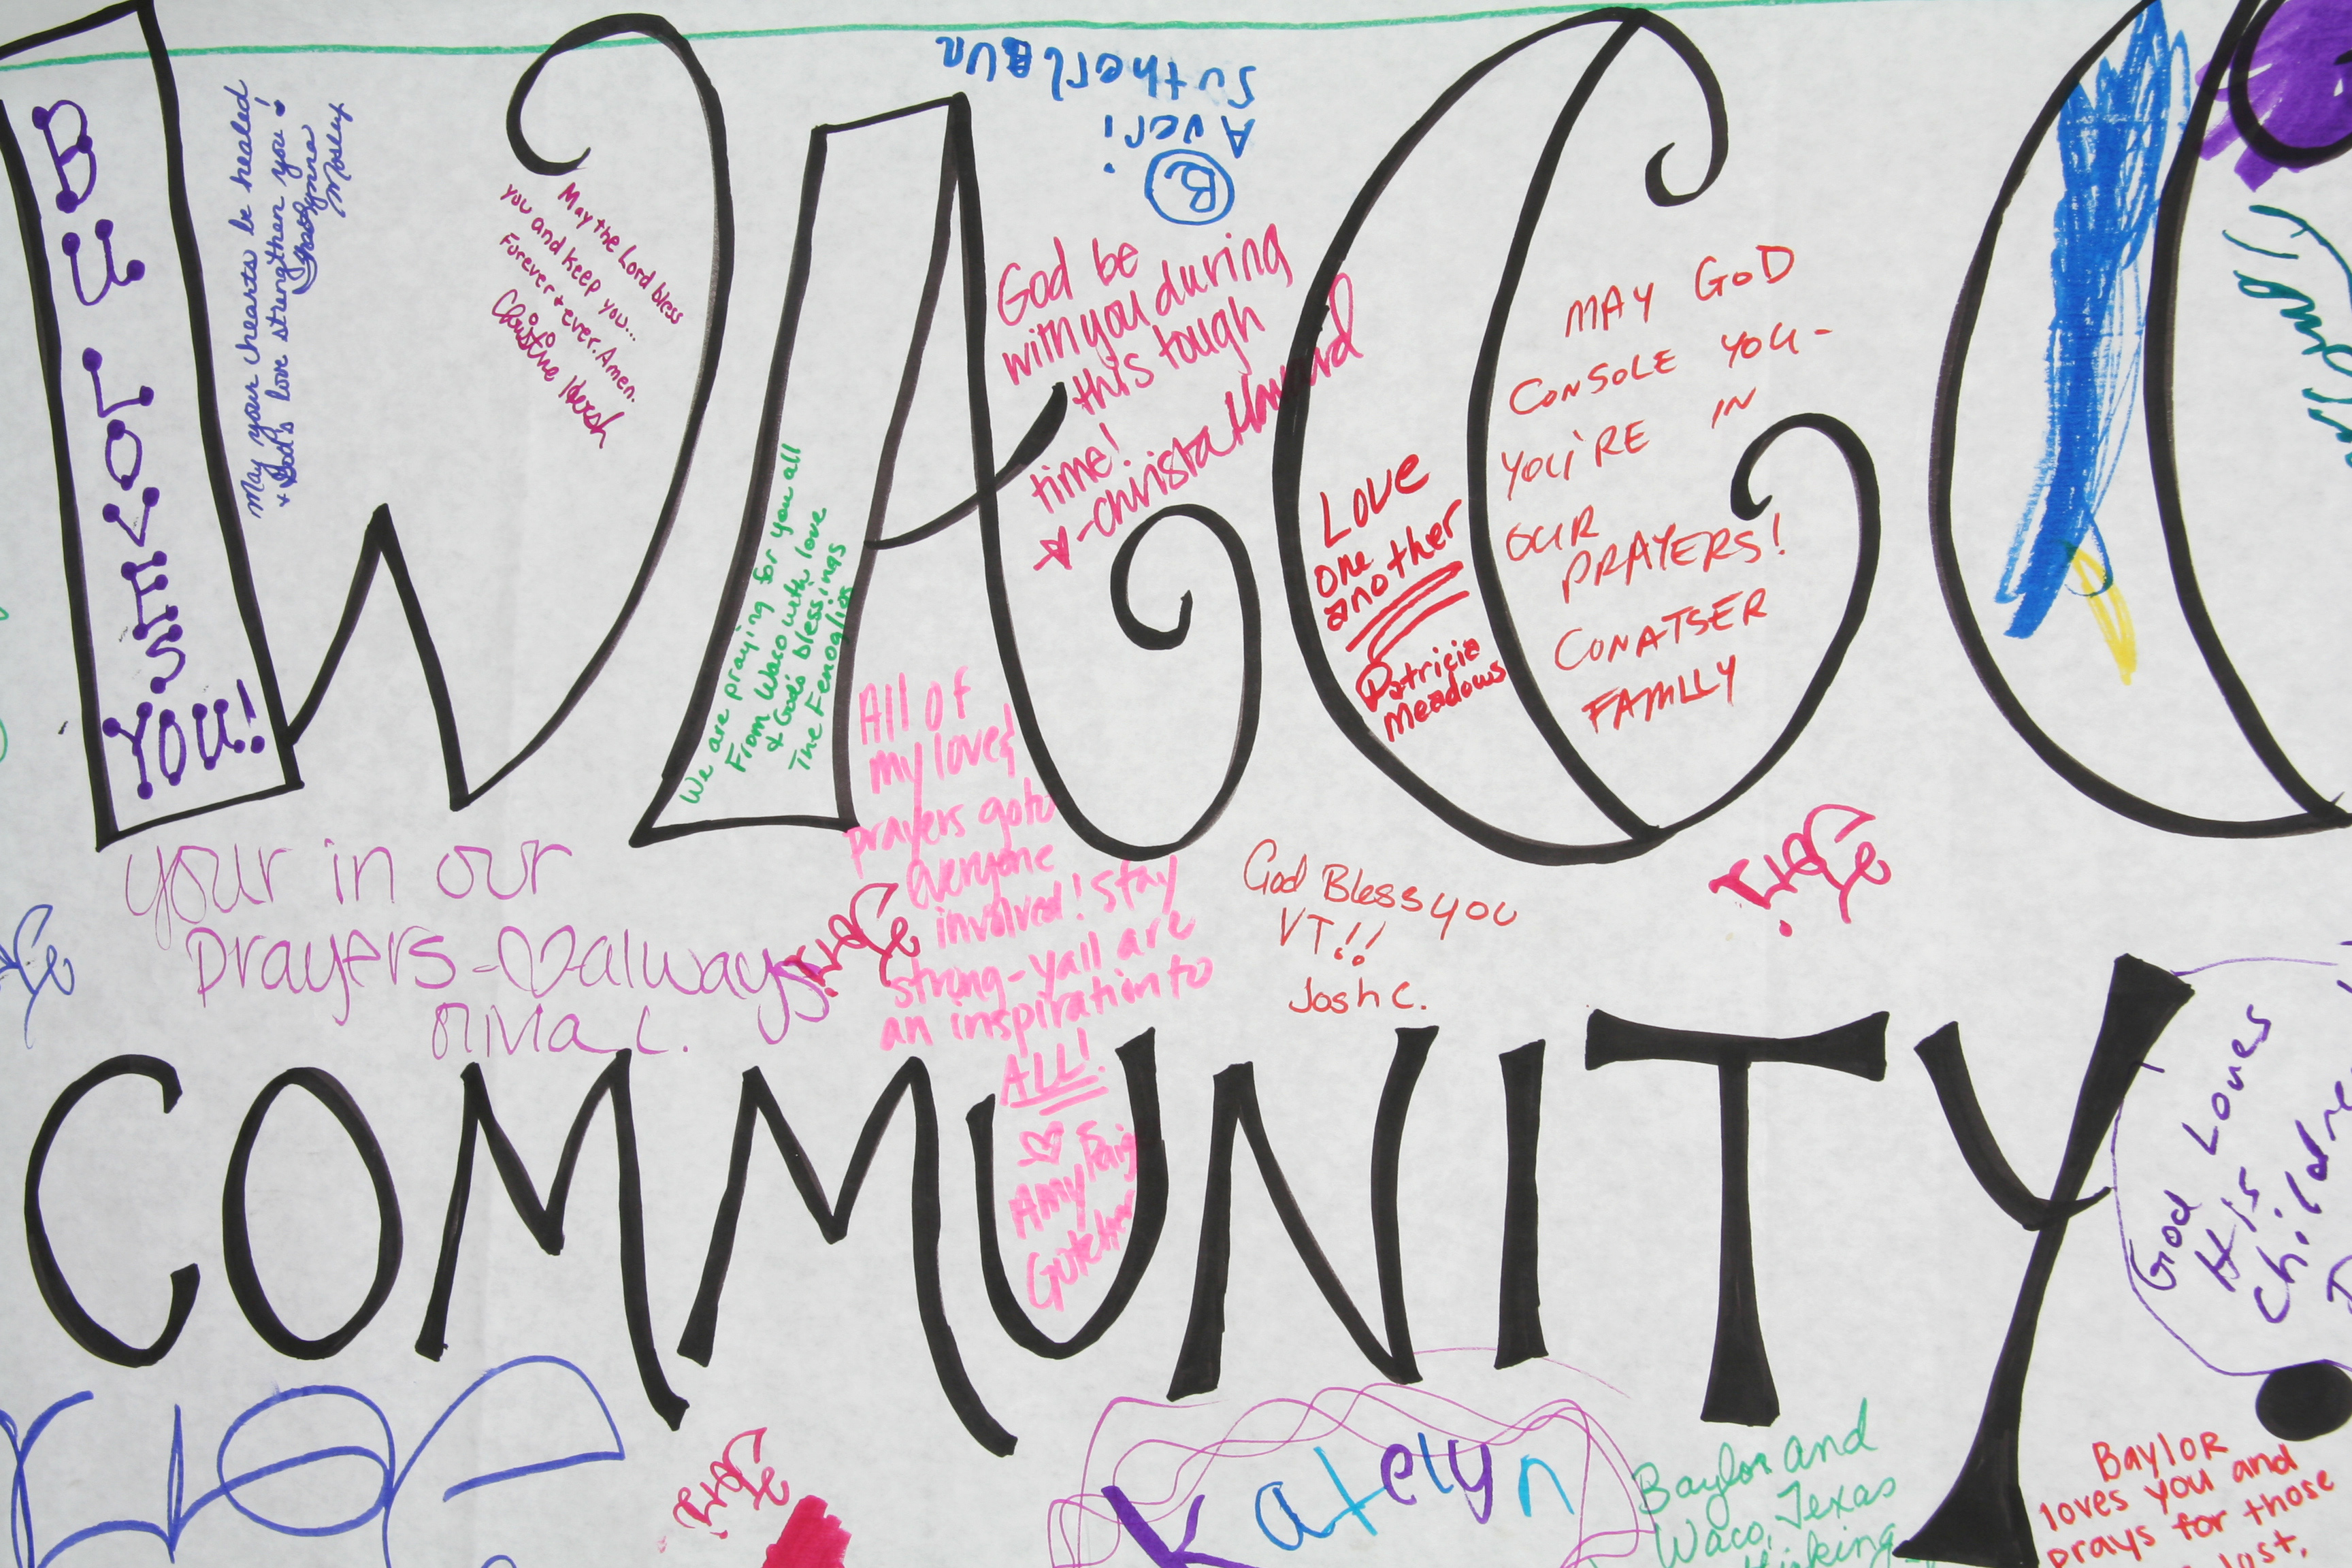 WACO
COMMUNITY
BU LOVES
YOU!
May your hearts be healed
+ God's love strengthen you!
Mosley
May the Lord bless
you and keep you...
Forever + ever. Amen.
We are praying for you all
From Waco with love
+ God's blessings
The Fenoglios
Averi
Sutherlun
B
God be
with you during
this tough
time!
-Christa
Love
one
another
Patricia
Meadows
MAY GOD
CONSOLE YOU-
YOU'RE IN
OUR
PRAYERS!
CONATSER
FAMILY
your in our
prayers-♡always
Olivia L.
All of
my love &
prayers go to
everyone
involved! Stay
strong-yall are
an inspiration to
ALL!
♡
Amy
God Bless you
VT!!
Josh C.
God Loves
His
Children
Katelyn
Baylor and
Waco, Texas
thinking
Baylor
loves you and
prays for those
lost.